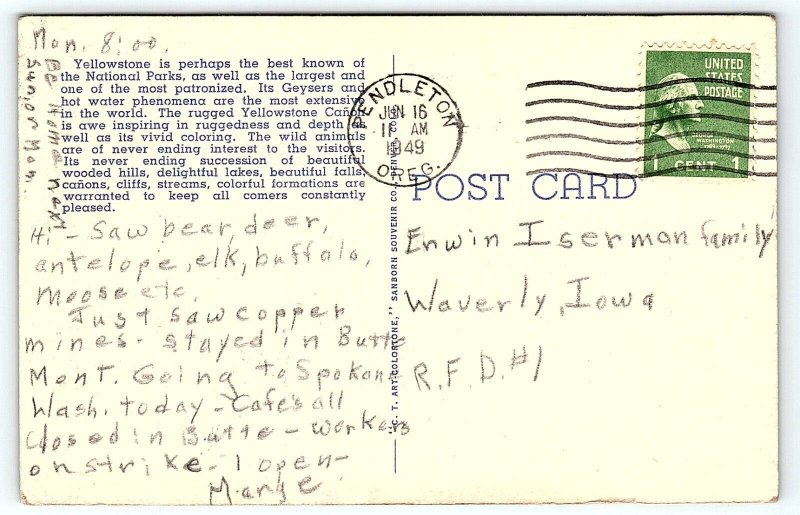 Mon. 8:00.
Be Home next
Sun, or Mon.
Yellowstone is perhaps the best known of
the National Parks, as well as the largest and
one of the most patronized. Its Geysers and
hot water phenomena are the most extensive
in the world. The rugged Yellowstone Cañon
is awe inspiring in ruggedness and depth as
well as its vivid coloring. The wild animals
are of never ending interest to the visitors.
Its never ending succession of beautiful
wooded hills, delightful lakes, beautiful falls,
cañons, cliffs, streams, colorful formations are
warranted to keep all comers constantly
pleased.
Hi - Saw bear, deer,
antelope, elk, buffalo,
Moose etc.
Just saw copper
mines - stayed in Butte
Mont. Going to Spokane
Wash. today - Cafe's all
closed in Butte - workers
on strike - 1 open -
Marge
"C. T. ART-COLORTONE," SANBORN SOUVENIR CO., DENVER, COLO.
PENDLETON
JUN 16
11 AM
1949
OREG.
UNITED
STATES
POSTAGE
GEORGE
WASHINGTON
1 CENT 1
POST CARD
Erwin Iserman family
Waverly, Iowa
R.F.D. #1